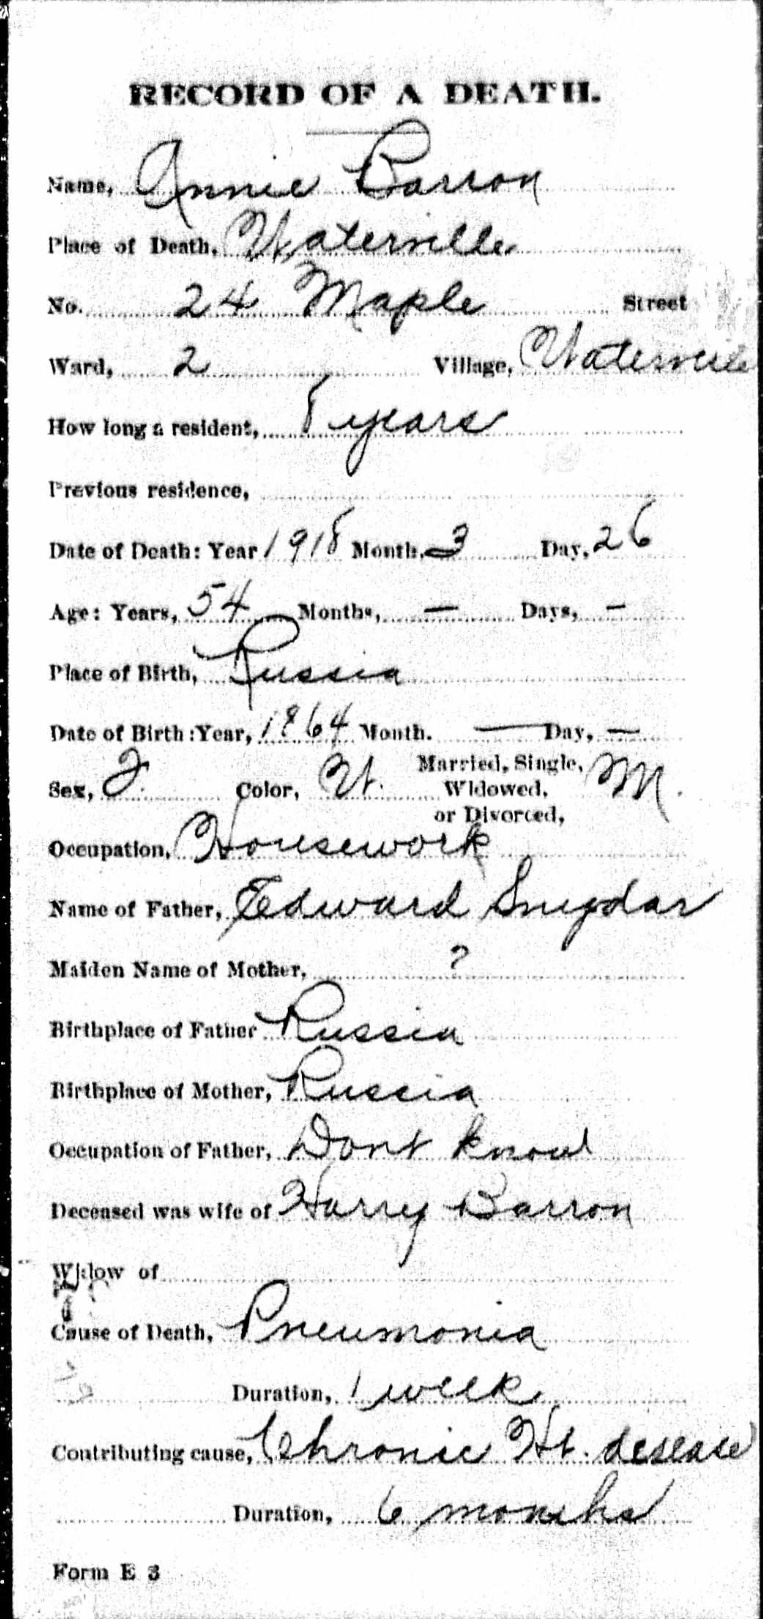 RECORD OF A DEATH.
Name, Annie Barron
Place of Death, Waterville
No. 24 Maple Street
Ward, 2 Village, Waterville
How long a resident, 8 years
Previous residence,
Date of Death: Year 1918 Month, 3 Day, 26
Age: Years, 54 Months, — Days, —
Place of Birth, Russia
Date of Birth: Year, 1864 Month. — Day, —
Sex, F. Color, W. Married, Single, Widowed, or Divorced, M.
Occupation, Housework
Name of Father, Edward Snygdar
Maiden Name of Mother, ?
Birthplace of Father Russia
Birthplace of Mother, Russia
Occupation of Father, Dont know
Deceased was wife of Harry Barron
Widow of
Cause of Death, Pneumonia
Duration, 1 week
Contributing cause, Chronic Ht. desease
Duration, 6 months
Form E 3